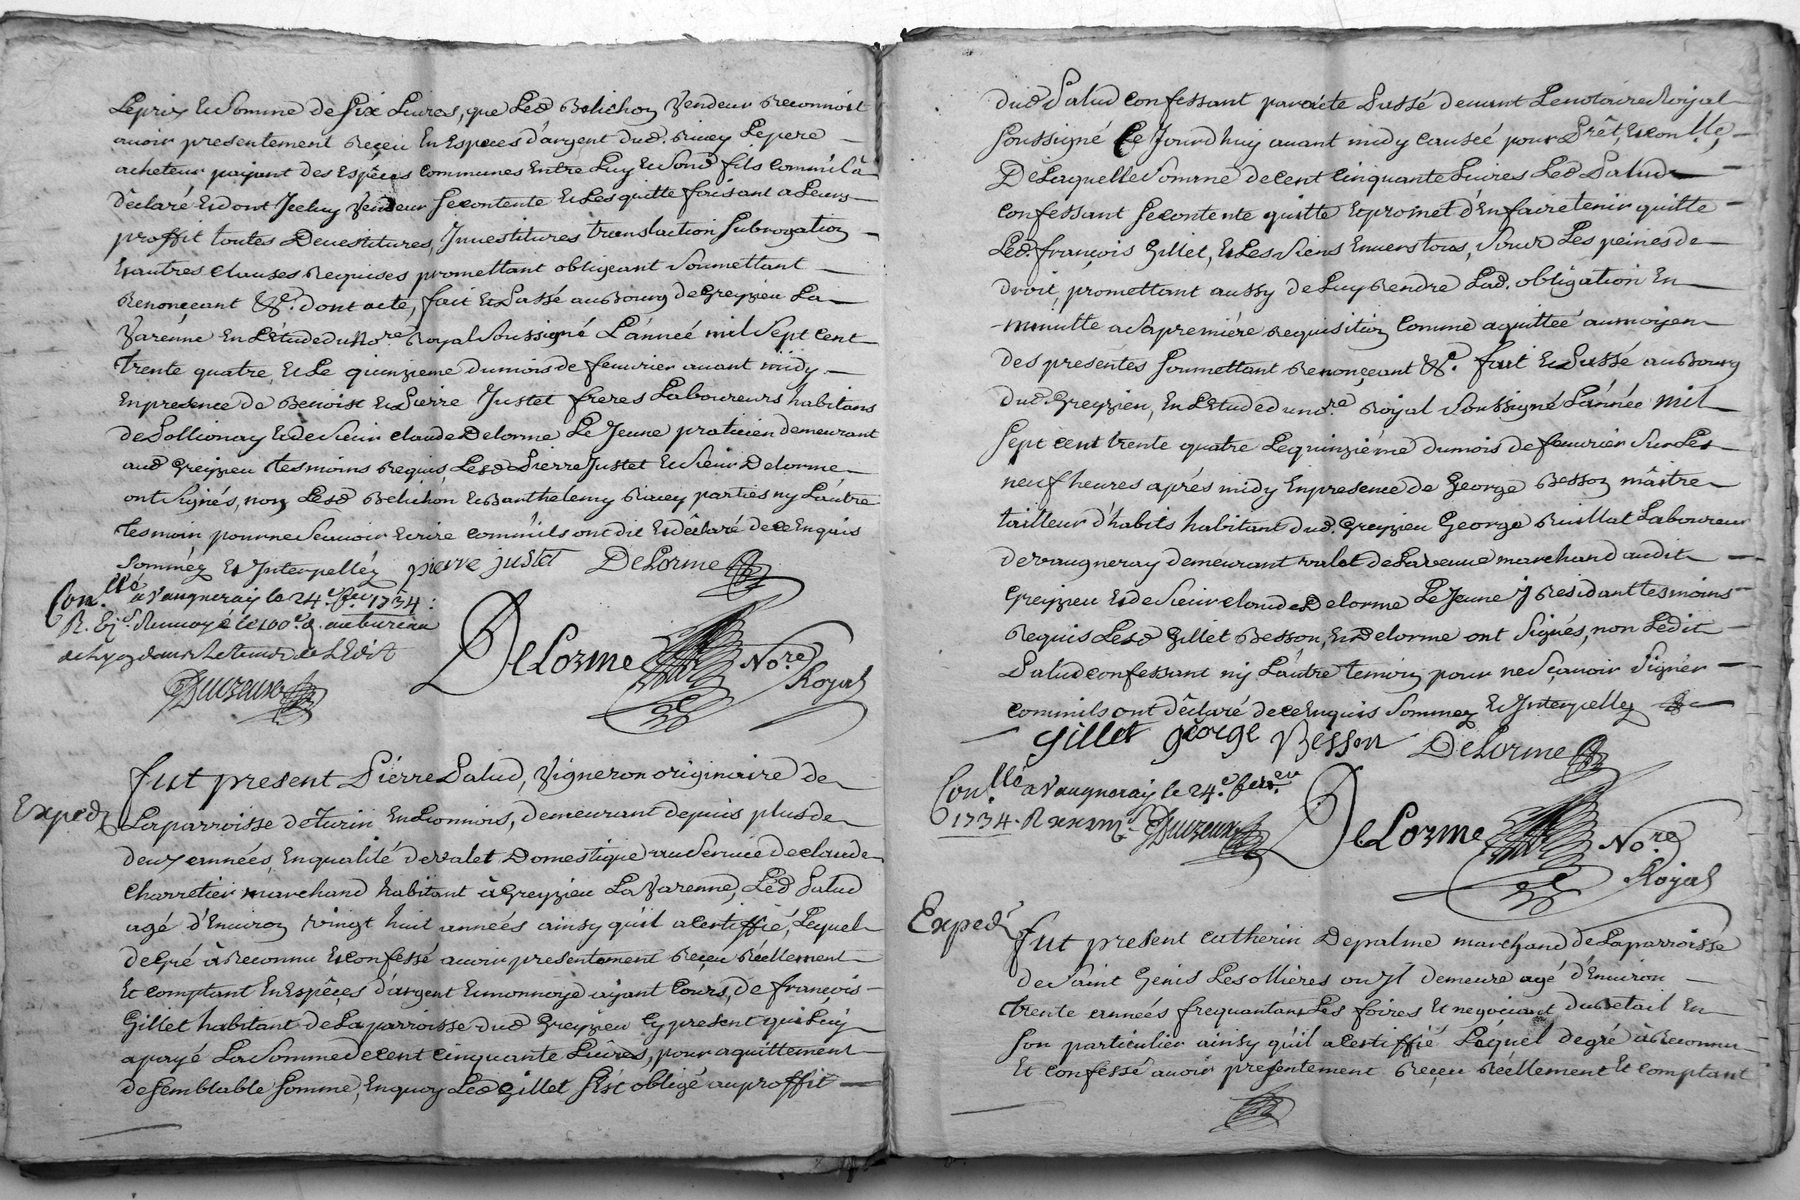 Leprix Et Somme de Six Livres, que Led Belichon Vendeur Reconnoit
avoir presentement Reçeu En Especes d'argent dud. Rivey Le pere
acheteur payant des Espéces communes Entre Luy Et Sond fils comm'il à
déclaré Et dont Jceluy Vendeur Se contente Et Les quitte faisant a Leurs
proffit toutes Devestitures, Jnvestitures translaction Subrogation
Et autres clauses Requises promettant obligeant Soumettant
Renonçeant &c. dont acte, fait Et Passé au Bourg de Greyzieu La
Varenne En L'étude du No.re Royal Soussigné L'année mil Sept Cent
trente quatre, Et Le quinzieme du mois de fevrier avant midy
En presence de Benoist Et Pierre Justet freres Laboureurs habitans
de Sollionay Et de Sieur claude Delorme Le Jeune praticien demeurant
aud Greyzieu tesmoins Requis Lesd Pierre Justet Et Sieur Delorme
ont Signés, non Lesd Belichon Et Barthelemy Rivey parties ny L'autre
tesmoin pour ne Scavoir Ecrire comm'ils ont dit Et déclaré de ce Enquis
Sommez Et Jnterpellez pierre justet Delorme
Con.llé à Vaugneray le 24.e fev 1734:
R. Renvoyé le 100.e d. au bureau
de Lyon dans Le temps de L'Edit
DeLorme No.re
Royal
fut present Pierre Salud, Vigneron originaire de
Exped
La parroisse de turin En Lionnois, demeurant depuis plus de
deux années, En qualité de valet Domestique au Service de claude
Charretier marchand habitant à Greyzieu La Varenne, Led Salud
agé d'Environ vingt huit années ainsy qu'il a certiffié, Lequel
de Gré à Reconnu Et confessé avoir presentement Reçeu Réellement
Et comptant En Espéces d'argent Et monnoye ayant Cours, de françois
Gillet habitant de La parroisse dud Greyzieu Cy present qui Luy
a payé La Somme de cent cinquante Livres, pour aquittement
de Semblable Somme, En quoy Led Gillet S'est obligé au proffit
dud Salud confessant par acte Passé devant Le notaire Royal
Soussigné Ce Jourd'huy avant midy causéé pour Prêt, Et con.llé,
De Laquelle Somme de cent Cinquante Livres Led Salud
confessant Se contente quitte Et promet d'En faire tenir quitte
Led. françois Gillet, Et Les Siens Envers tous, Sous Les peines de
droit, promettant aussy de Luy Rendre Lad. obligation En
minutte a Sa premiére Requisition Comme aquittéé au moyen
des presentes Soumettant Renonçeant &c. fait Et Passé au Bourg
dud Greyzieu, En L'Etude du no.re Royal Soussigné L'année mil
Sept cent trente quatre Le quinziéme du mois de fevrier Sur Les
neuf heures aprés midy En presence de George Besson maître
tailleur d'habits habitant dud. Greyzieu George Ruillat Laboureur
de vaugneray demeurant valet de La veuve marchand audit
Greyzieu Et de Sieur claude Delorme Le Jeune y Residant tesmoins
Requis Lesd Gillet Besson, Et Delorme ont Signés, non Ledit
Salud confessant ny L'autre temoin pour ne Sçavoir Signer
comm'ils ont déclaré de ce Enquis Sommez Et Jnterpellez
gillet george Besson Delorme
Con.llé à Vaugneray le 24.e fev.er
1734. R
DeLorme No.re
Royal
Exped
fut present Catherin Depalme marchand de La parroisse
de Saint Genis Les ollières ou Jl demeure agé d'Environ
trente années frequantant Les foires Et negociant du Detail En
Son particulier ainsy qu'il a certiffié Lequel de gré à Reconnu
Et confessé avoir presentement Reçeu Réellement Et comptant